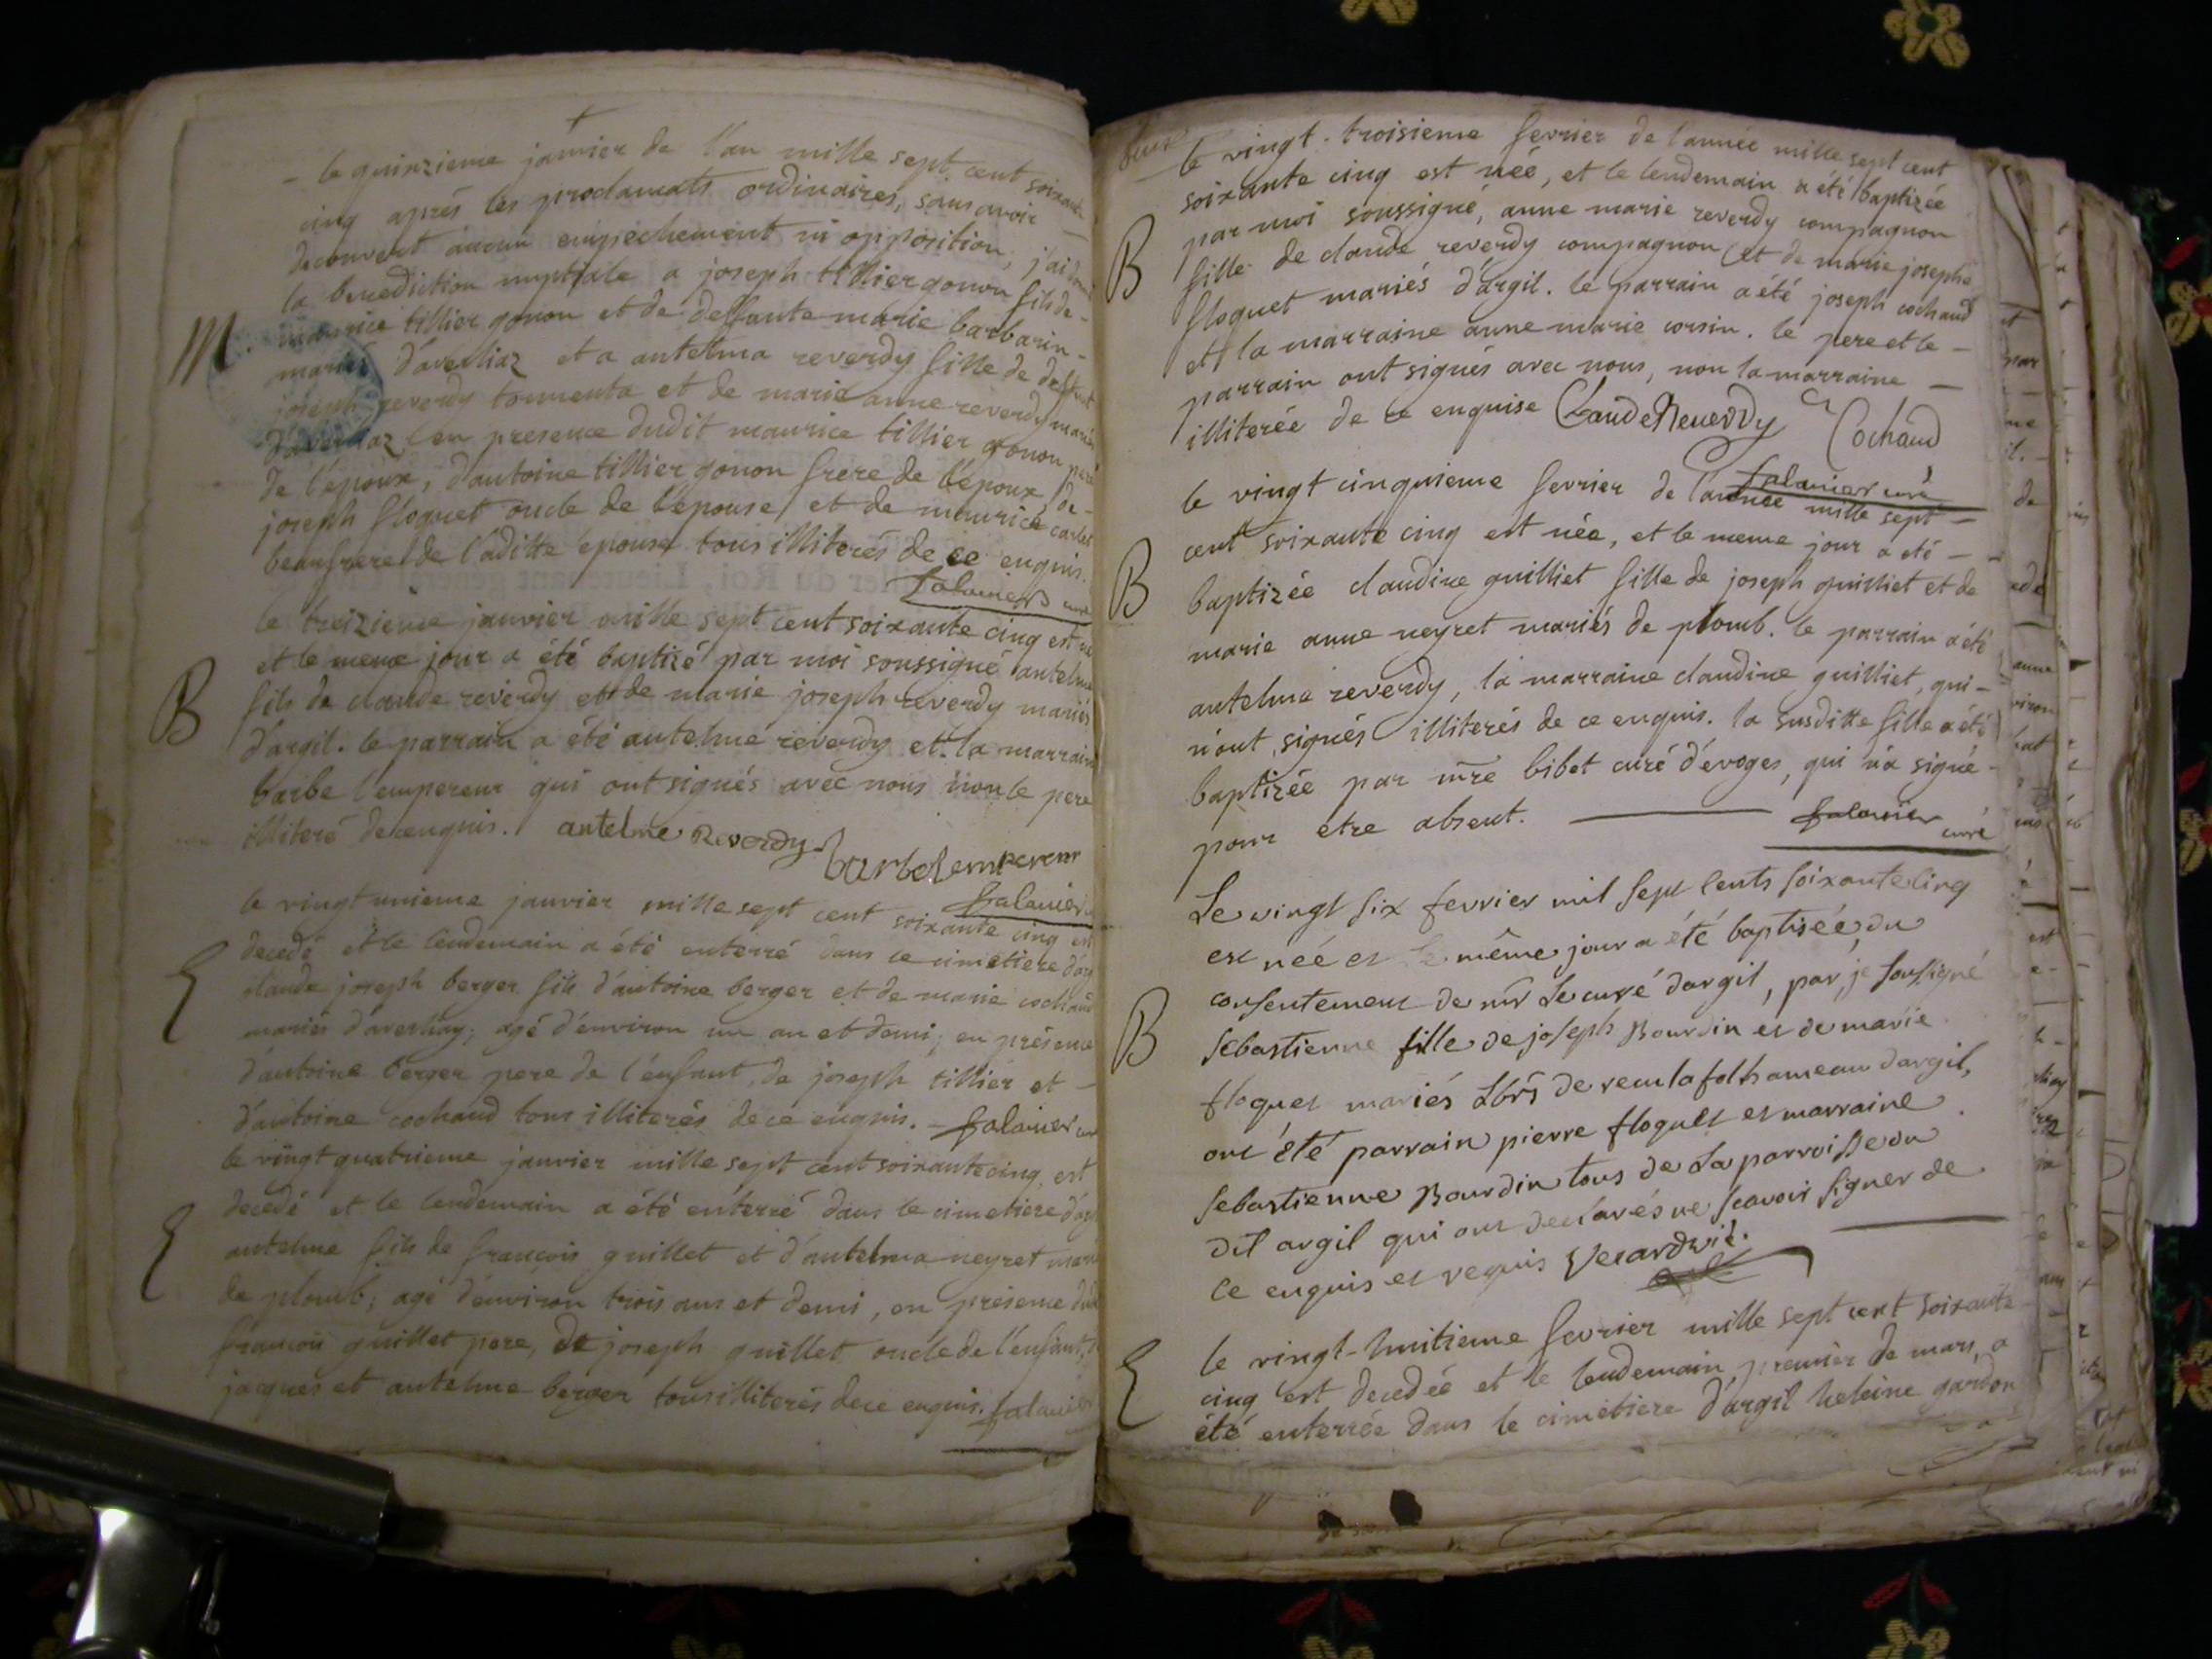 le quinzieme janvier de l'an mille sept cent soixante
cinq aprés les proclamats ordinaires, sans avoir
decouvert aucun empechement ni opposition, j'ai donné
la benediction nuptiale a joseph tillier gonon fils de
M. maurice tillier gonon et de deffunte marie barbarin
mariés d'averliaz et a antelma reverdy fille de deffunt
joseph reverdy tonnenta et de marie anne reverdy mariés
d'averliaz, en presence dudit maurice tillier gonon pere
de l'époux, d'antoine tillier gonon frere de l'époux, de
joseph floquet oncle de l'épouse, et de maurice carlet
beaufrere de laditte epouse tous illiterés de ce enquis.
falavier curé
le treizieme janvier mille sept cent soixante cinq est né
et le meme jour a été baptizé par moi soussigné antelme
B fils de claude reverdy et de marie joseph reverdy mariés
d'argil. le parrain a été antelme reverdy et la marraine
barbe l'empereur qui ont signés avec nous non le pere
illiteré de ce enquis. antelme Reverdy
barbe lempereur
falavier
le vingt unieme janvier mille sept cent soixante cinq est
decedé et le lendemain a été enterré dans le cimetiere d'arg
E claude joseph berger fils d'antoine berger et de marie cochand
mariés d'averliay; agé d'environ un an et demi; en présence
d'antoine berger pere de l'enfant, de joseph tillier et
d'antoine cochand tous illiterés de ce enquis. falavier curé
le vingt quatrieme janvier mille sept cent soixante cinq, est
decedé et le lendemain a été enterré dans le cimetiere d'arg
E antelme fils de françois guillet et d'antelma neyret mariés
de plomb; agé d'environ trois ans et demi, en présence dudit
françois guillet pere, de joseph guillet oncle de l'enfant,
jacques et antelme berger tous illiterés de ce enquis. falavier
le vingt-troisieme fevrier de l'année mille sept cent
soixante cinq est née, et le lendemain a été baptizée
par moi soussigné, anne marie reverdy compagnon
B fille de claude reverdy compagnon et de marie josephe
floquet mariés d'argil. le parrain a été joseph cochand
et la marraine anne marie corsin. le pere et le
parrain ont signés avec nous, non la marraine
illiterée de ce enquise Claude Reverdy Cochand
falavier curé
le vingt cinquieme fevrier de l'année mille sept
cent soixante cinq est née, et le meme jour a été
B baptizée claudine guilliet fille de joseph guilliet et de
marie anne neyret mariés de plomb. le parrain a été
antelme reverdy, la marraine claudine guilliet, qui
n'ont signés illiterés de ce enquis. la susditte fille a été
baptizée par mre bibet curé d'évoges, qui n'a signé
pour etre absent. falavier curé
Le vingt six fevrier mil sept cents soixante cinq
est née et le même jour a été baptisée, du
consentement de mr Le curé dargil, par je soussigné
B sebastienne fille de joseph Bourdin et de marie
floquet mariés Lbrs de reculafolh ameau dargil,
ont été parrain pierre floquet et marraine
sebastienne Bourdin tous de La parroisse du
dit argil qui ont declarés ne scavoir signer de
ce enquis et requis Verard vic.
le vingt-huitieme fevrier mille sept cent soixante
E cinq est decedée et le lendemain, premier de mars, a
été enterrée dans le cimetiere d'argil heleine gardon